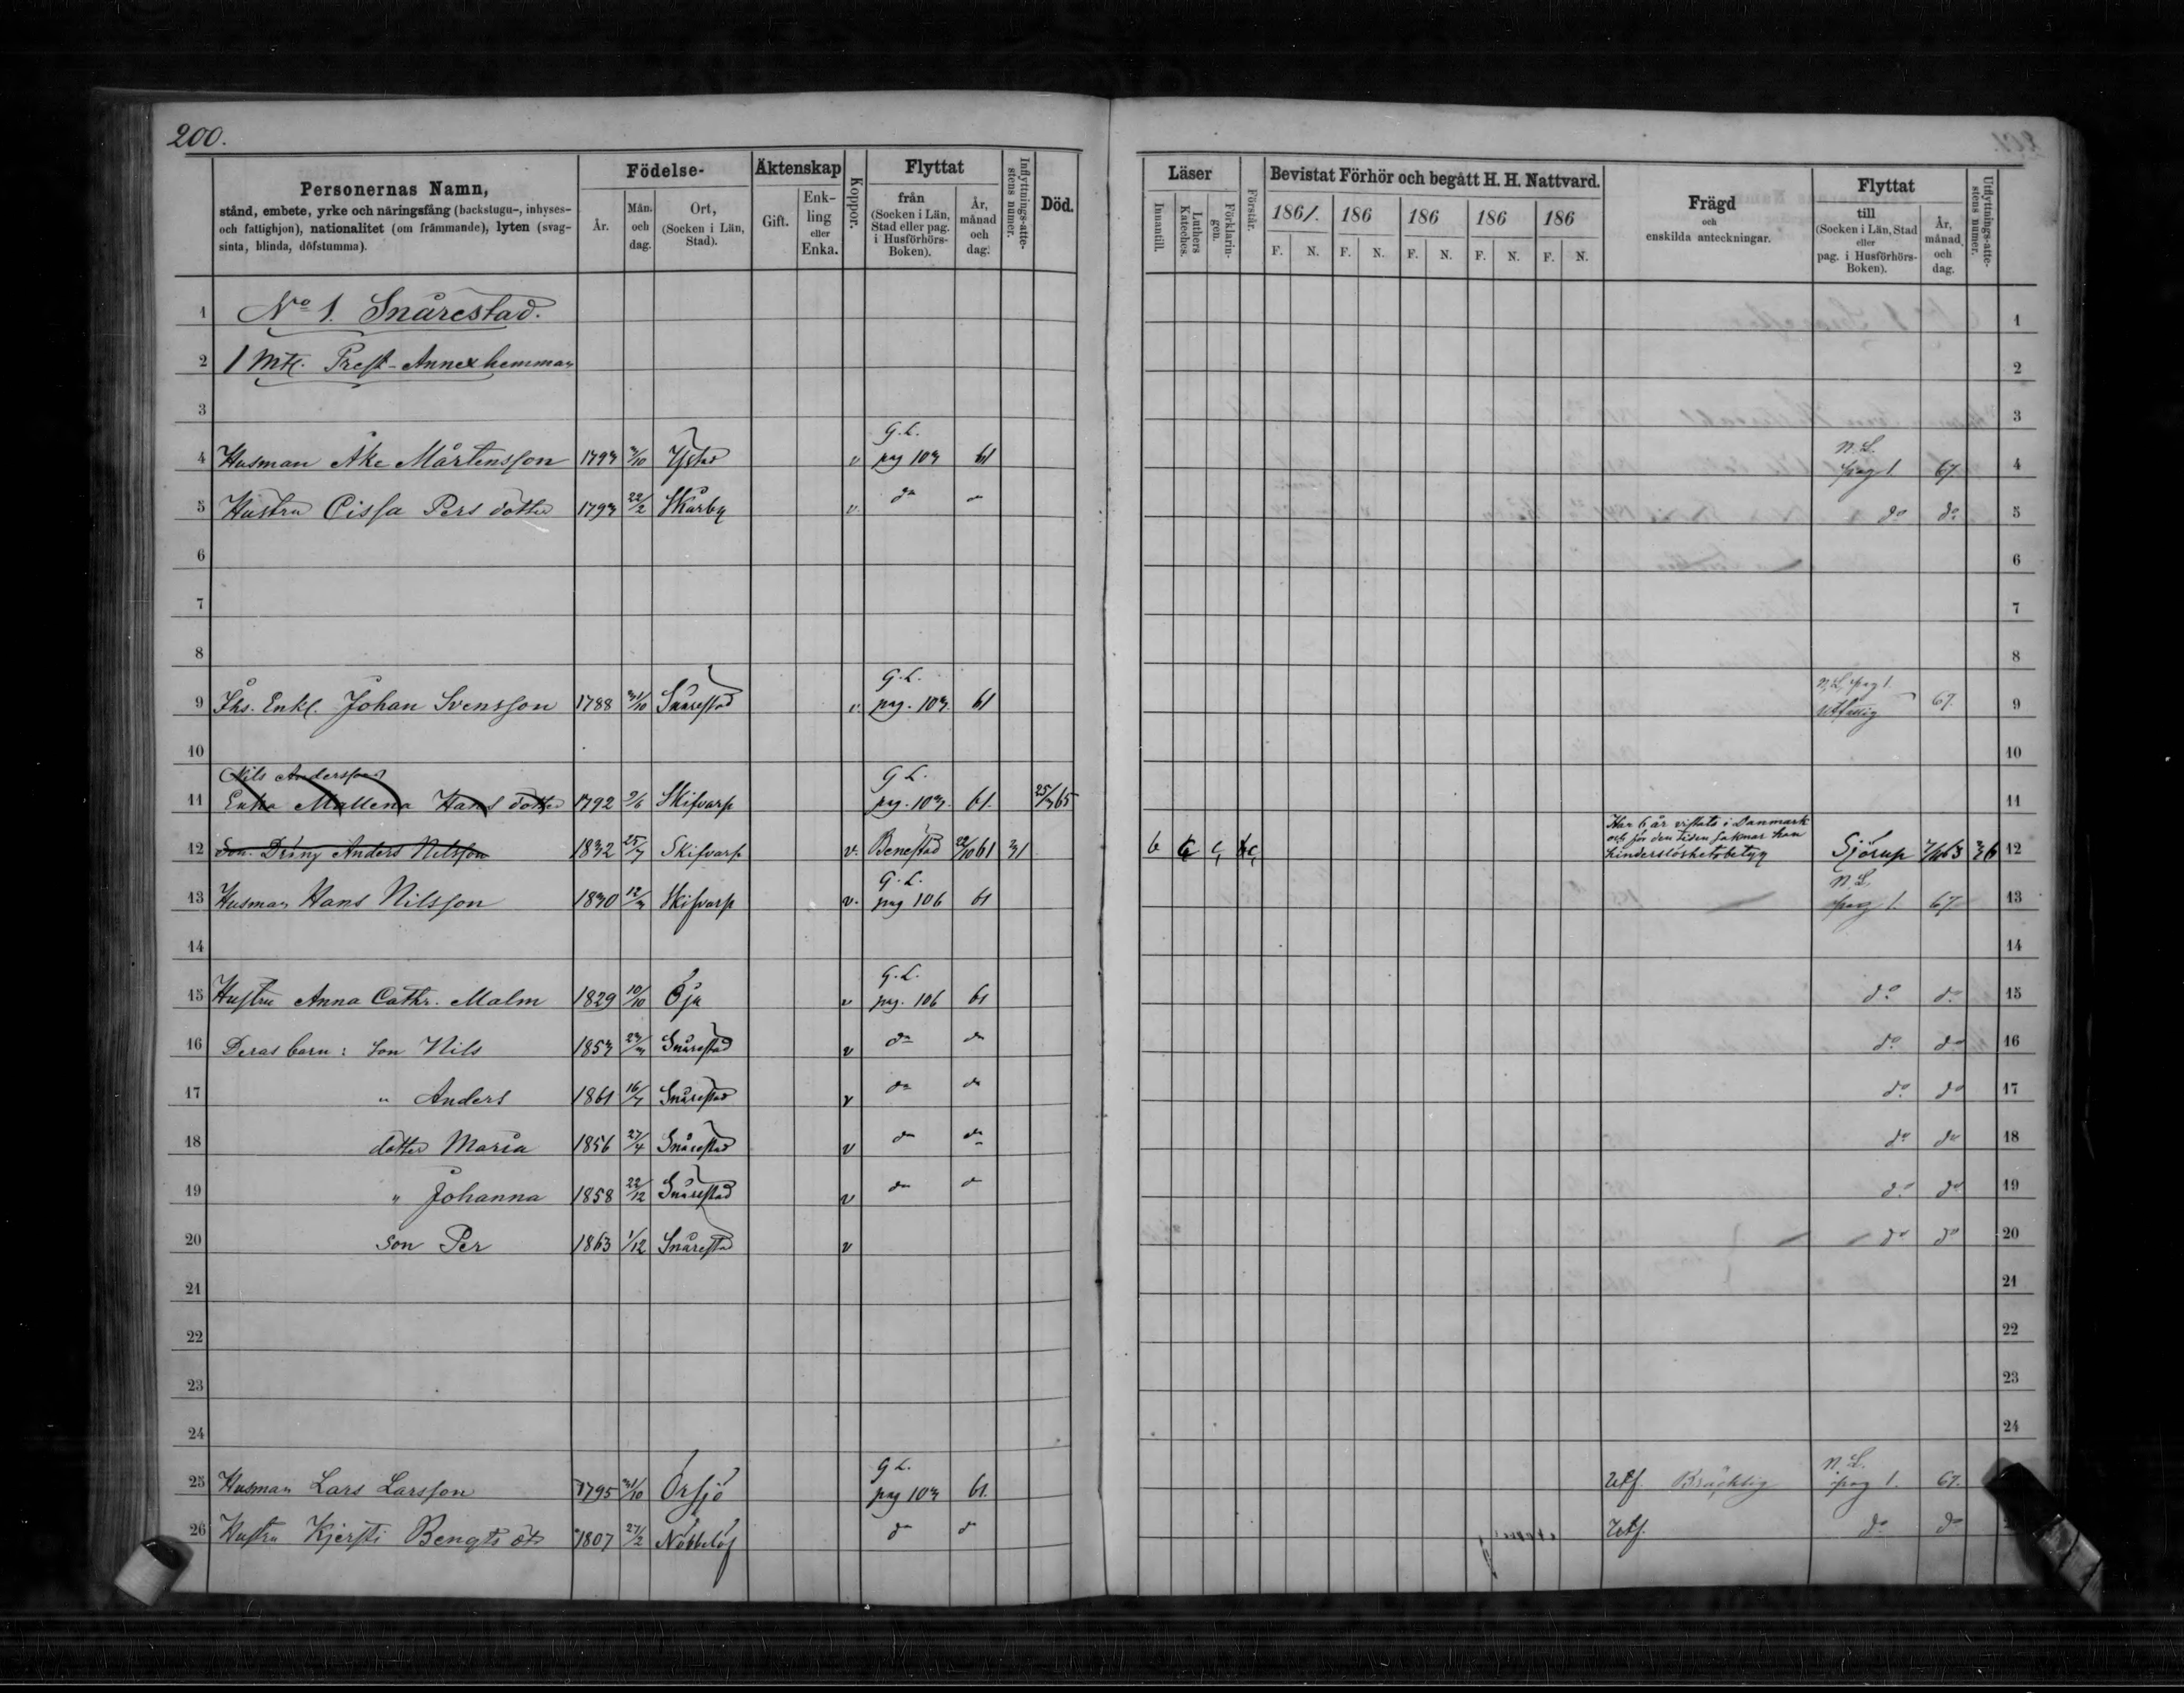 200.
Personernas Namn,
stånd, embete, yrke och näringsfång (backstugu-, inhyses-
och fattighjon), nationalitet (om främmande), lyten (svag-
sinta, blinda, döfstumma).
Födelse-
År.
Mån. och dag.
Ort, (Socken i Län, Stad).
Äktenskap
Gift.
Enk-ling eller Enka.
Koppor.
Flyttat
från (Socken i Län, Stad eller pag. i Husförhörs-Boken).
År, månad och dag.
Inflyttnings-atte-stens numer.
Död.
Läser
Innantill.
Luthers Kateches.
Förklarin-gen.
Förstår.
Bevistat Förhör och begått H. H. Nattvard.
1861. 186 186 186 186
F. N. F. N. F. N. F. N. F. N.
Frägd
och
enskilda anteckningar.
Flyttat
till (Socken i Län, Stad eller pag. i Husförhörs-Boken).
År, månad och dag.
Utflyttnings-atte-stens numer.
1 No 1. Snårestad. 1
2 1 Mtl. Prest-Annexhemman 2
3 3
G.L. N.L.
4 Husman Åke Mårtensson 1793 /10 Ystad v pag 103 61 pag 1. 67. 4
5 Hustru Cissa Persdotter 1793 22/2 Skårby v. do do do do 5
6 6
7 7
8 8
G.L. N.L. pag 1.
9 Ihs. Enkl. Johan Svensson 1788 31/10 Snårestad v. pag. 103. 61 Utfattig 67. 9
10 10
Nils Anderssons G L.
11 Enka Mallena Hansdotter 1792 9/6 Skifvarp pag. 103. 61. 25/3 65 11
Har 6 år vistats i Danmark
och för den tiden saknar han
12 Son. Dräng Anders Nilsson 1832 25/7 Skifvarp v. Benestad 22/10 61 31 hinderslöshetsbetyg Sjörup 63 36 12
G.L. N.L.
13 Husman Hans Nilsson 1830 12/3 Skifvarp v. pag 106 61 pag 1. 67 13
14 14
G.L.
15 Hustru Anna Cathr. Malm 1829 10/10 Öja v pag. 106 61 do do 15
16 Deras barn: Son Nils 1853 Snårestad v do do do do 16
17 " Anders 1861 16/7 Snårestad v do do do do 17
18 dotter Maria 1856 27/4 Snårestad v do do do do 18
19 " Johanna 1858 22/12 Snårestad v do do do do 19
20 son Per 1863 1/12 Snårestad v do do 20
21 21
22 22
23 23
24 24
G L. N.L.
25 Husman Lars Larsson 1795 31/10 Örsjö pag 103 61. Utf. Bräcklig pag 1. 67.
26 Hustru Kjersti Bengtsdtr 1807 27/2 Nöbbelöf do do Utf. do do